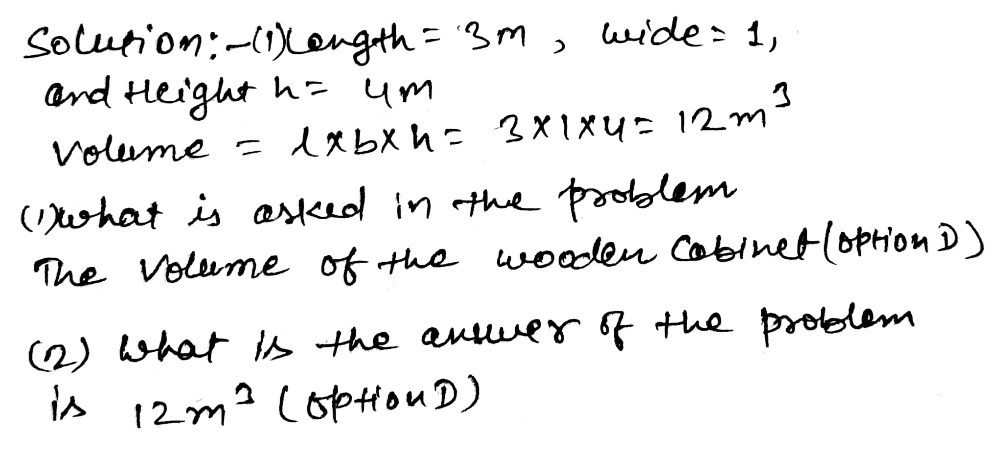 Solution:-(1)Length = 3m, wide = 1,
and Height h = 4m
Volume = l×b×h = 3×1×4 = 12m³
(1)what is asked in the problem
The Volume of the wooden Cabinet (option D)
(2) What is the answer of the problem
is 12m³ (option D)